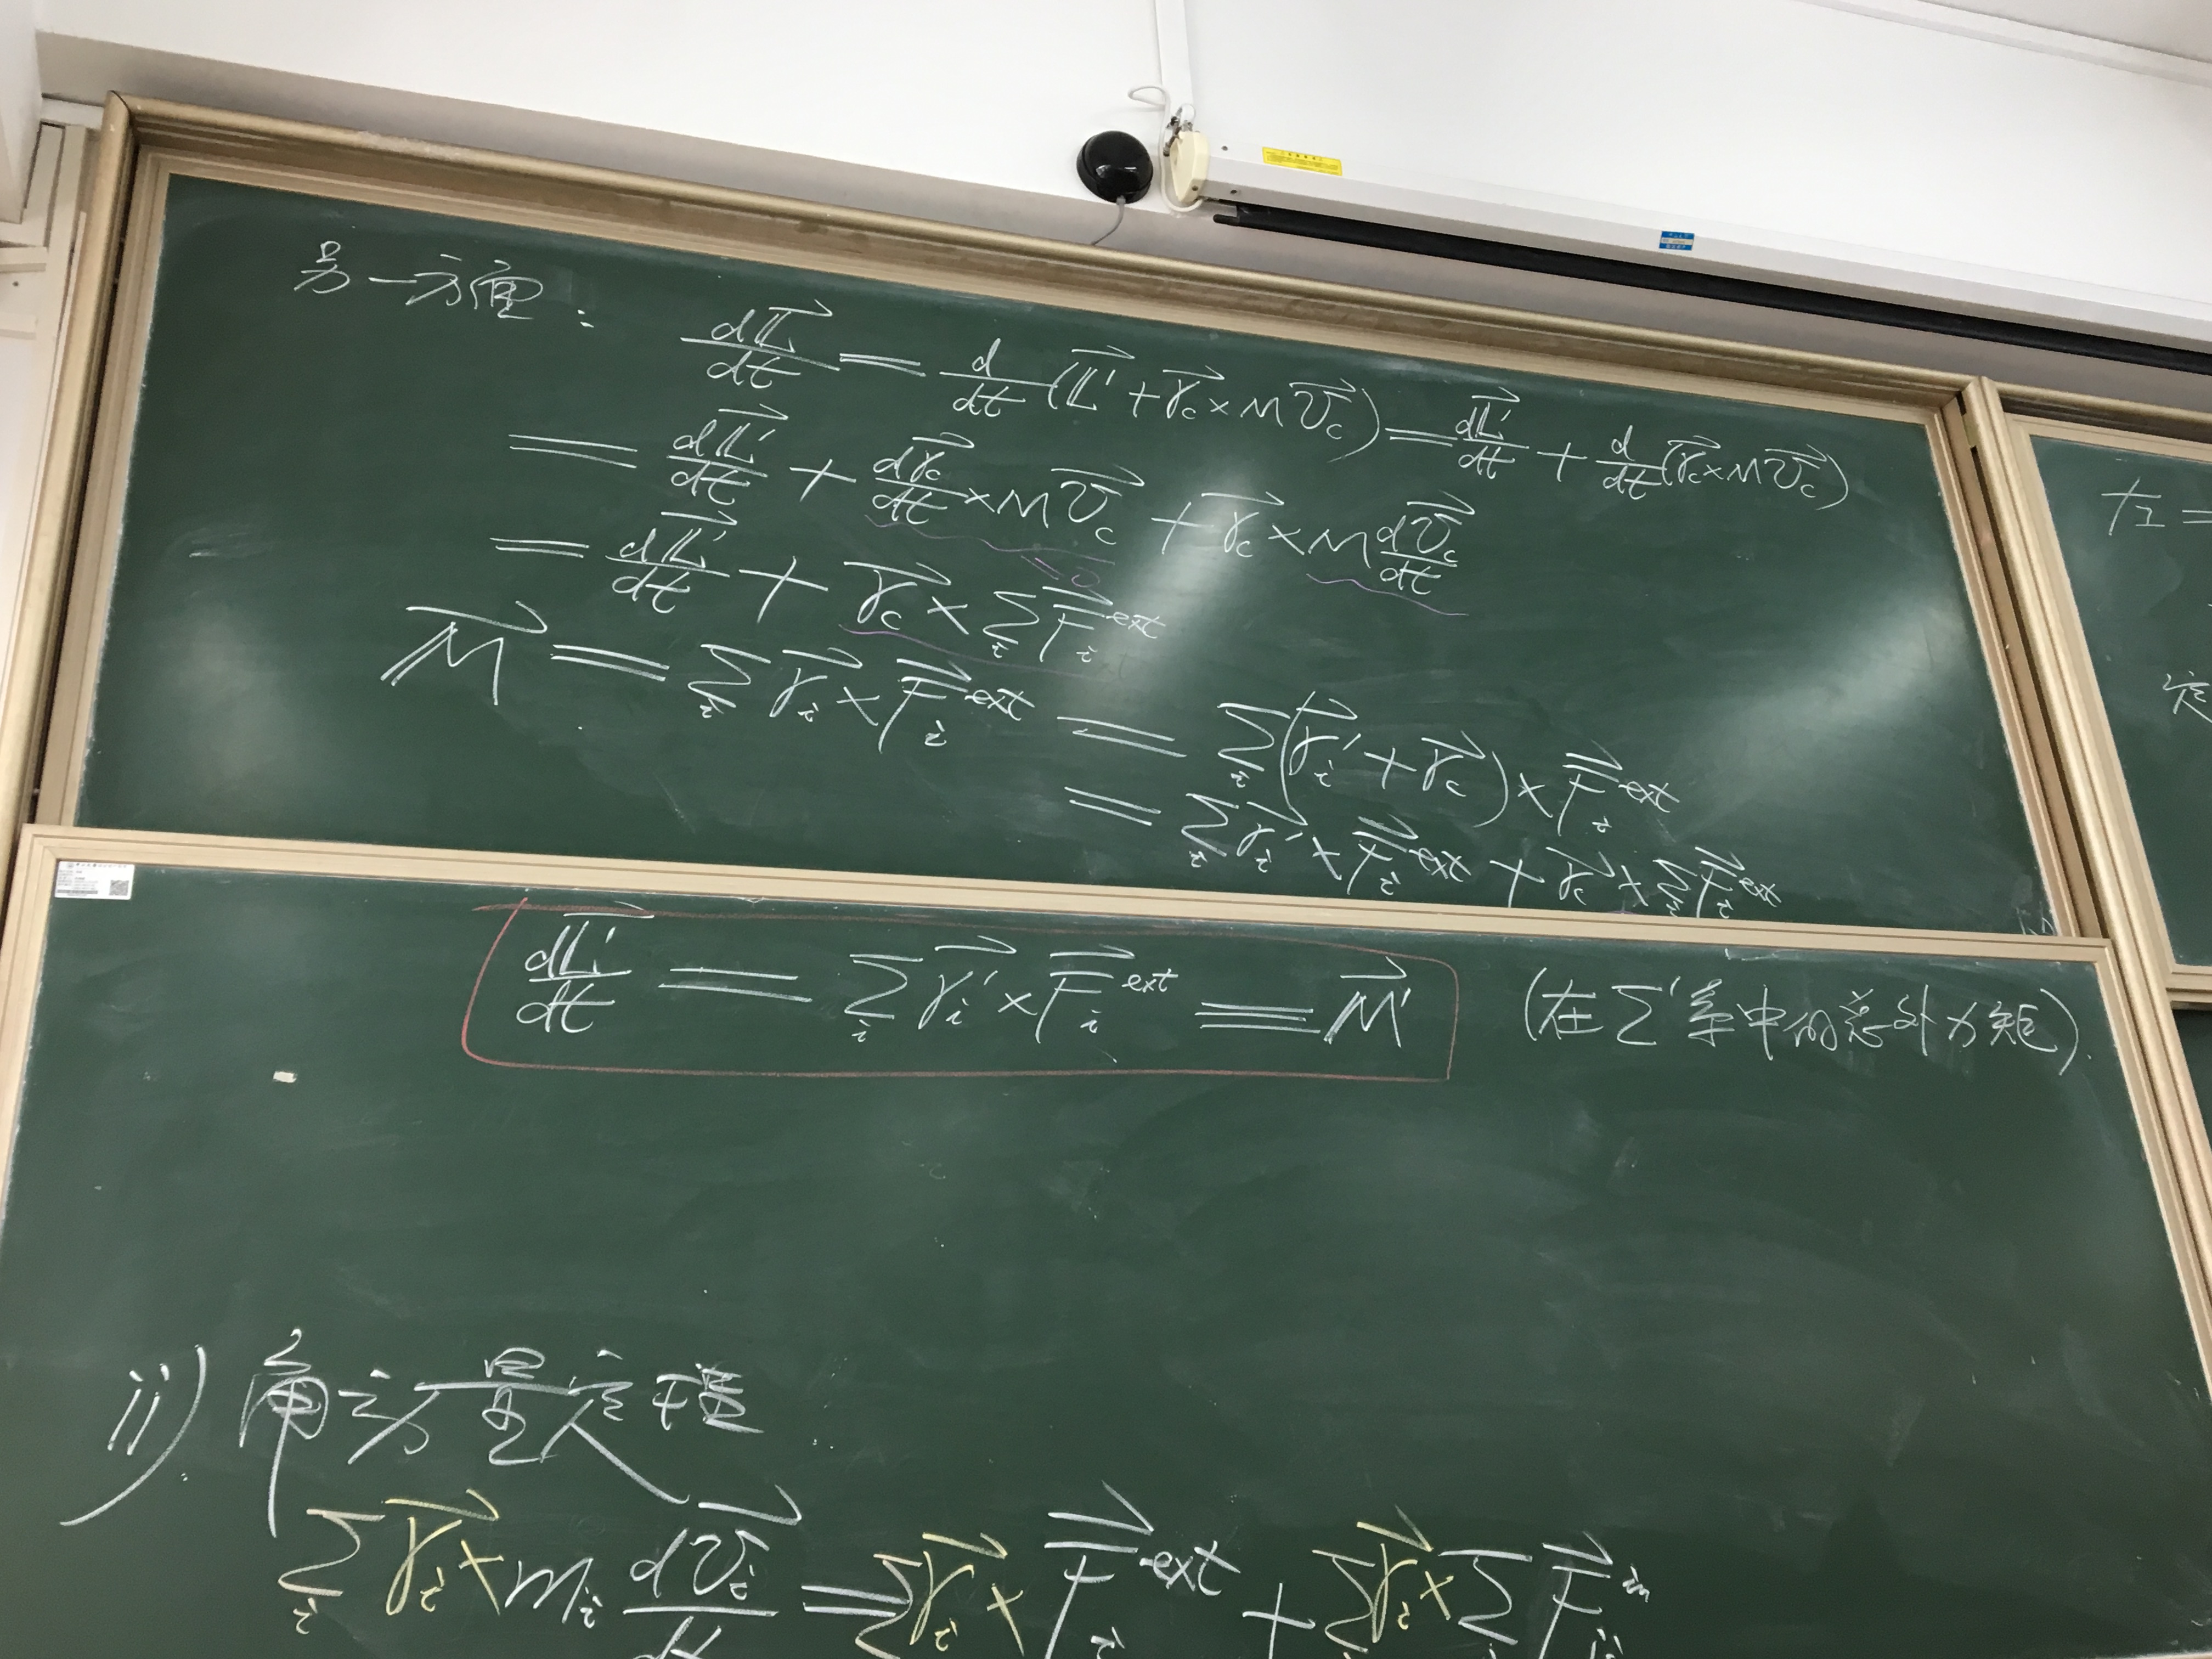 另一方面: dL⃗/dt = d/dt (L⃗' + r⃗_c × m v⃗_c) = dL⃗'/dt + d/dt (r⃗_c × m v⃗_c)
= dL⃗'/dt + dr⃗_c/dt × m v⃗_c + r⃗_c × m dv⃗_c/dt
=0
= dL⃗'/dt + r⃗_c × Σ_i F⃗_i^ext
M⃗ = Σ_i r⃗_i × F⃗_i^ext = Σ_i (r⃗_i' + r⃗_c) × F⃗_i^ext
= Σ_i r⃗_i' × F⃗_i^ext + r⃗_c × Σ_i F⃗_i^ext
dL⃗'/dt = Σ_i r⃗_i' × F⃗_i^ext ≡ M⃗' (在Σ'系中的总外力矩).
ii). 角动量定理
Σ_i r⃗_i × m_i dv⃗_i/dt = Σ r⃗_i × F⃗_i^ext + Σ r⃗_i × Σ F⃗^in
左=